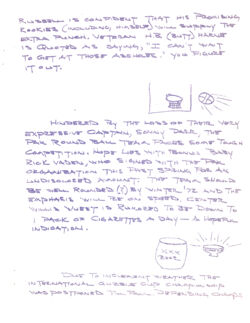 RUSSELL IS CONFIDENT THAT HIS PROMISING
ROOKIES (INCLUDING HIMSELF) WILL SUPPLY THE
EXTRA PUNCH. VETERAN H.B. (BUTT) HARNE
IS QUOTED AS SAYING, "I CAN'T WAIT
TO GET AT THOSE ASSHOLES." YOU FIGURE
IT OUT.
HINDERED BY THE LOSS OF THEIR VERY
EXPRESSIVE CAPTAIN, SONNY DARR, THE
PAR ROUND BALL TEAM FACES SOME TOUGH
COMPETITION. HOPE LIES WITH BONUS BABY
RICK VADEN, WHO SIGNED WITH THE PAR
ORGANIZATION THIS PAST SPRING FOR AN
UNDISCLOSED AMOUNT. THE TEAM SHOULD
BE WELL ROUNDED (!) BY WINTER '72 AND THE
EMPHASIS WILL BE ON SPEED. CENTER
WILLIS VWEST IS RUMORED TO BE DOWN TO
1 PACK OF CIGARETTES A DAY — A HOPEFUL
INDICATION.
XXX
BEER
DUE TO INCLEMENT WEATHER THE
INTERNATIONAL GUZZLE CUP CHAMPIONSHIP
WAS POSTPONED. THE PAR, DEFENDING CHAMPS